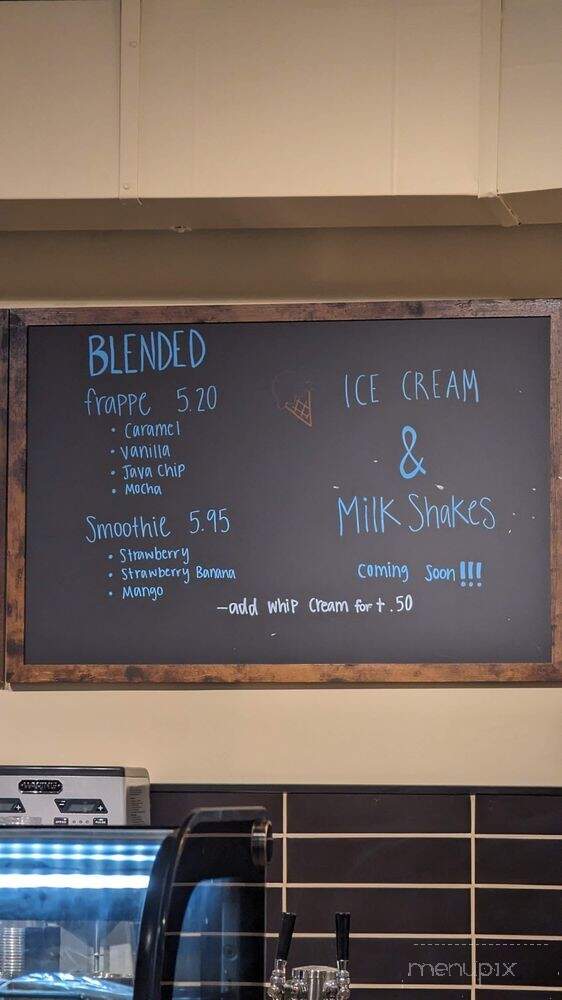 BLENDED
frappe 5.20
• Caramel
• Vanilla
• Java Chip
• Mocha
Smoothie 5.95
• Strawberry
• Strawberry Banana
• Mango
ICE CREAM
&
Milk Shakes
coming soon!!!
-add whip cream for + .50
menupix